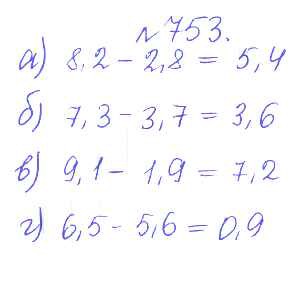 № 753.
а) 8,2 - 2,8 = 5,4
б) 7,3 - 3,7 = 3,6
в) 9,1 - 1,9 = 7,2
г) 6,5 - 5,6 = 0,9